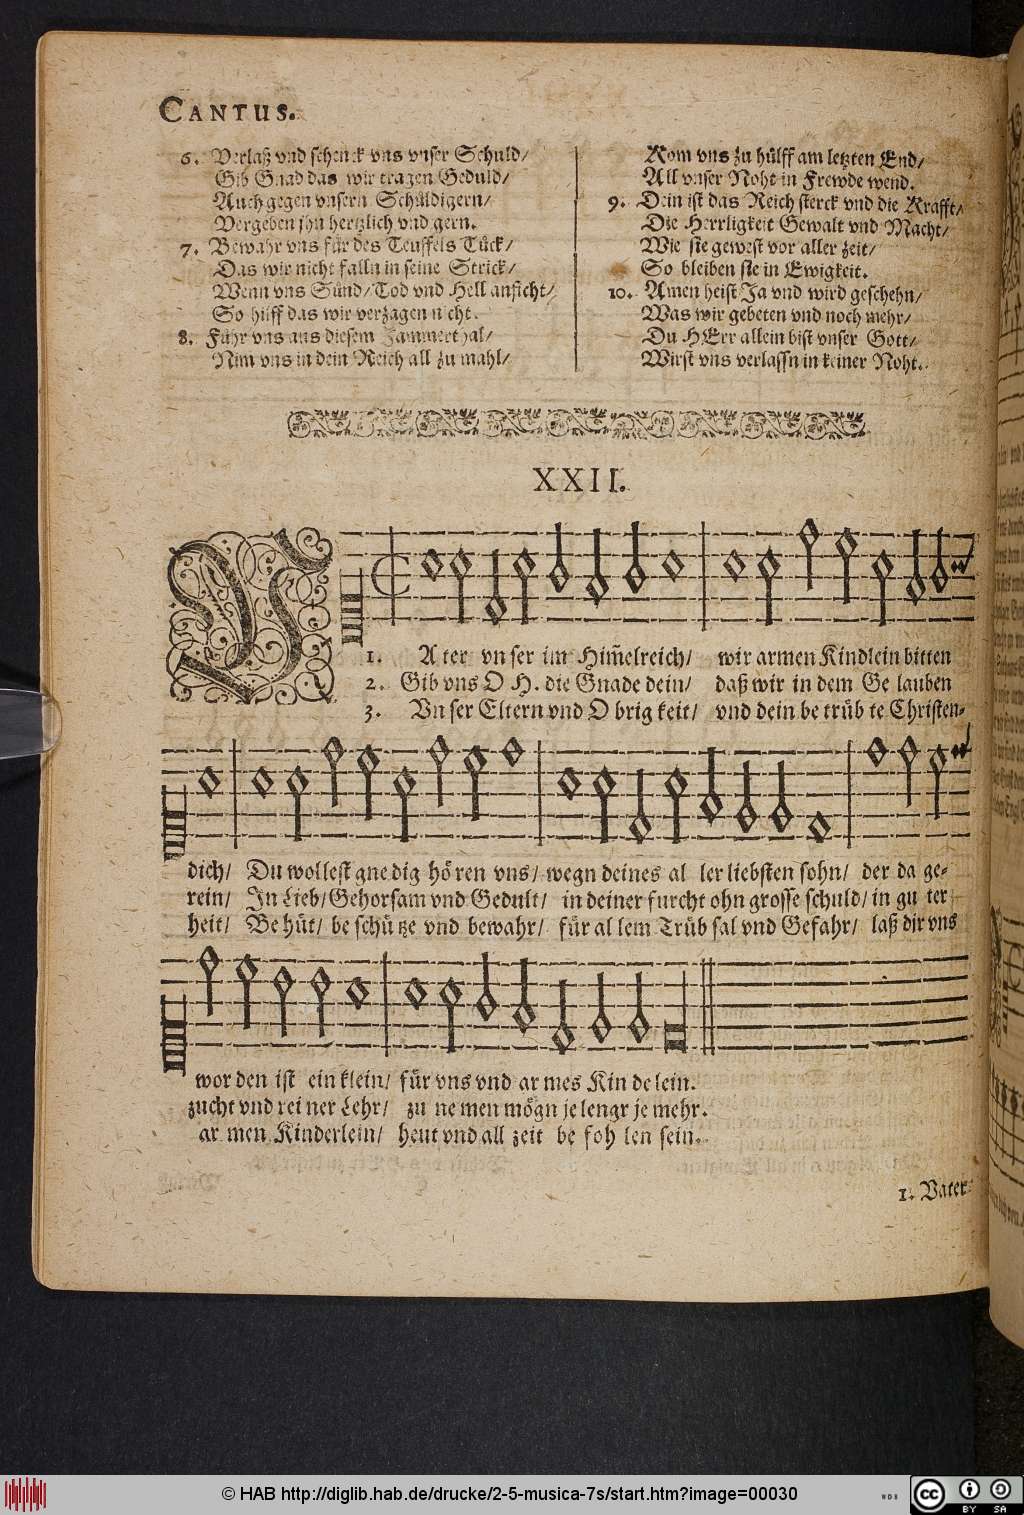 CANTUS.
6. Verlaß vnd schenck vns vnser Schuld/
Gib Gnad das wir tragen Geduld/
Auch gegen vnsern Schüldigern/
Vergeben jhn hertzlich vnd gern.
7. Bewahr vns für des Teuffels Tück/
Das wir nicht falln in seine Strick/
Wenn vns Sünd/Tod vnd Hell anficht/
So hilff das wir verzagen nicht.
8. Führ vns aus diesem Jammerthal/
Nim vns in dein Reich all zu mahl/
Kom vns zu hülff am letzten End/
All vnser Noht in Frewde wend.
9. Dein ist das Reich sterck vnd die Krafft/
Die Herrligkeit Gewalt vnd Macht/
Wie sie gewest vor aller zeit/
So bleiben sie in Ewigkeit.
10. Amen heist Ja vnd wird geschehn/
Was wir gebeten vnd noch mehr/
Du HErr allein bist vnser Gott/
Wirst vns verlassn in keiner Noht.
XXII.
V
1. A ter vn ser im Him̃elreich/ wir armen Kindlein bitten
2. Gib vns O H. die Gnade dein/ daß wir in dem Ge lauben
3. Vn ser Eltern vnd O brig keit/ vnd dein be trüb te Christen-
dich/ Du wollest gne dig hö ren vns/ wegn deines al ler liebsten sohn/ der da ge-
rein/ In Lieb/Gehorsam vnd Gedult/ in deiner furcht ohn grosse schuld/ in gu ter
heit/ Be hüt/ be schü tze vnd bewahr/ für al lem Trüb sal vnd Gefahr/ laß dir vns
wor den ist ein klein/ für vns vnd ar mes Kin de lein.
zucht vnd rei ner Lehr/ zu ne men mögn je lengr je mehr.
ar men Kinderlein/ heut vnd all zeit be foh len sein.
1. Vater
© HAB http://diglib.hab.de/drucke/2-5-musica-7s/start.htm?image=00030
WDB
cc
BY SA